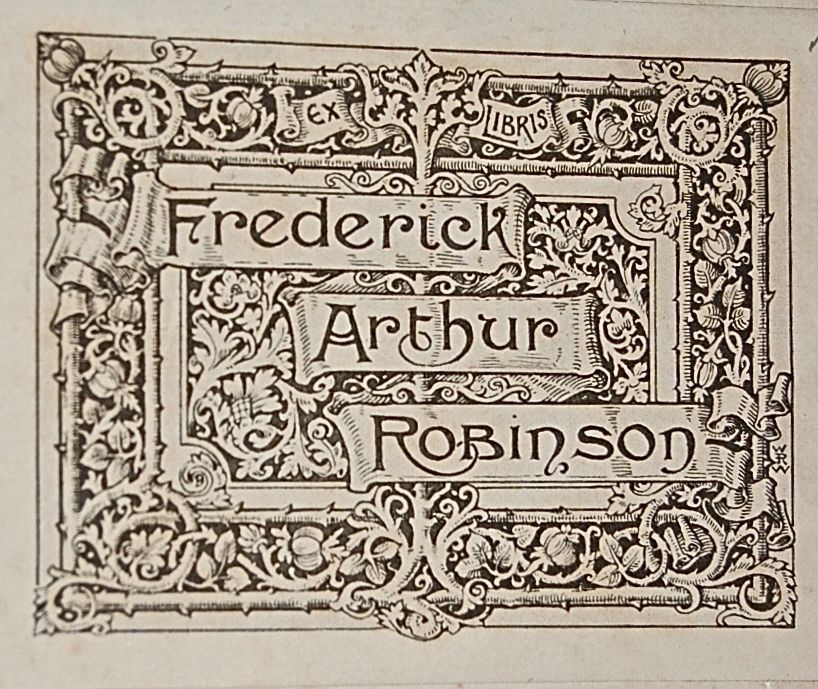 EX LIBRIS
Frederick
Arthur
Robinson